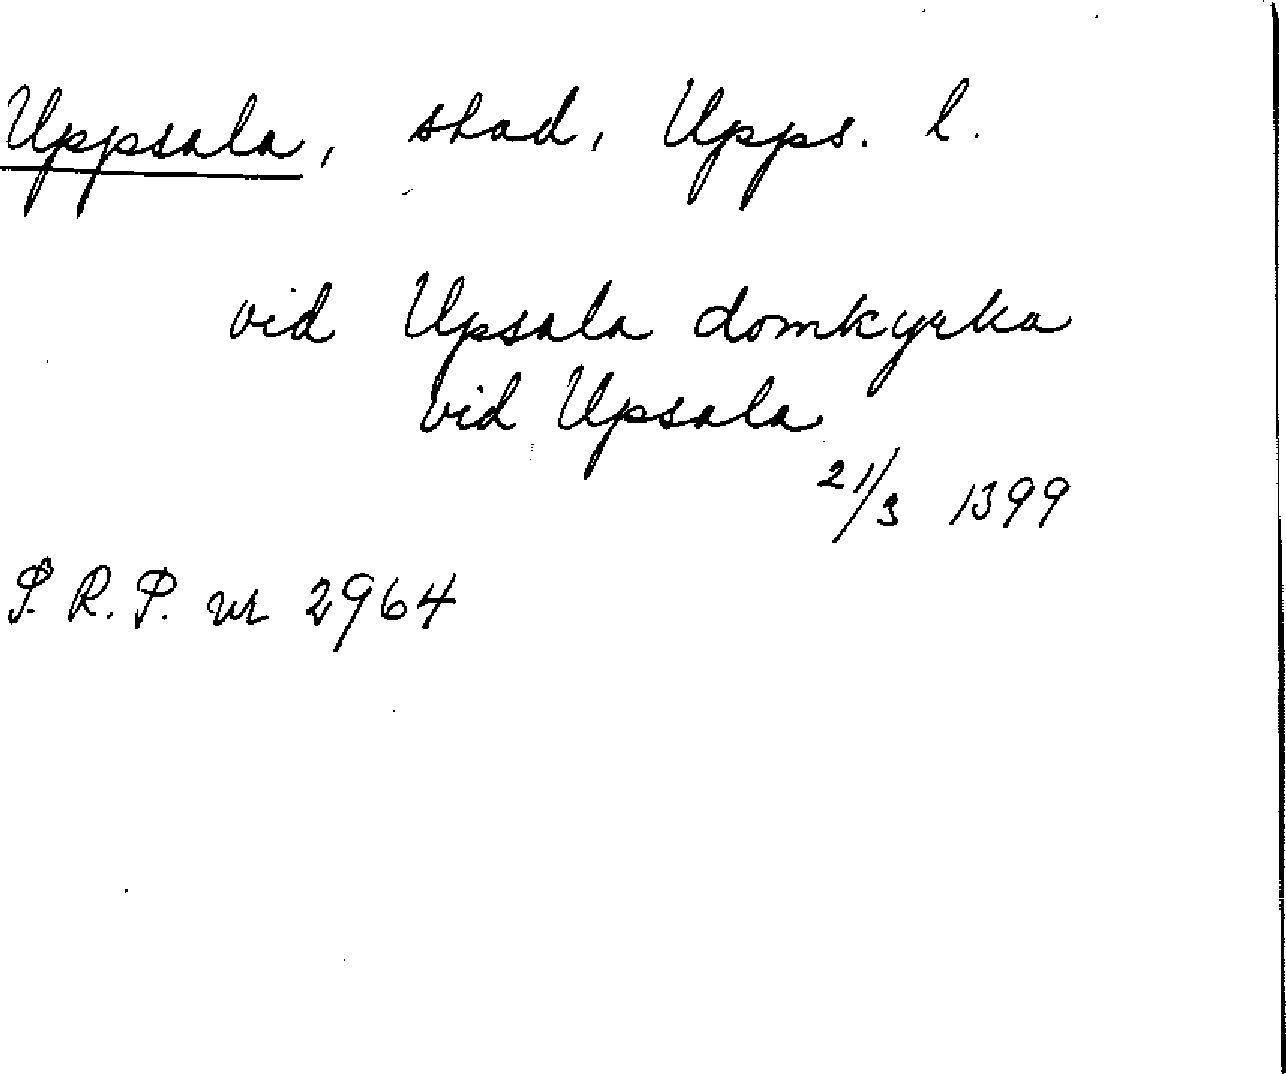 Uppsala, stad, Upps. l.
vid Upsala domkyrka
vid Upsala
21/3 1399
S. R. P. nr 2964